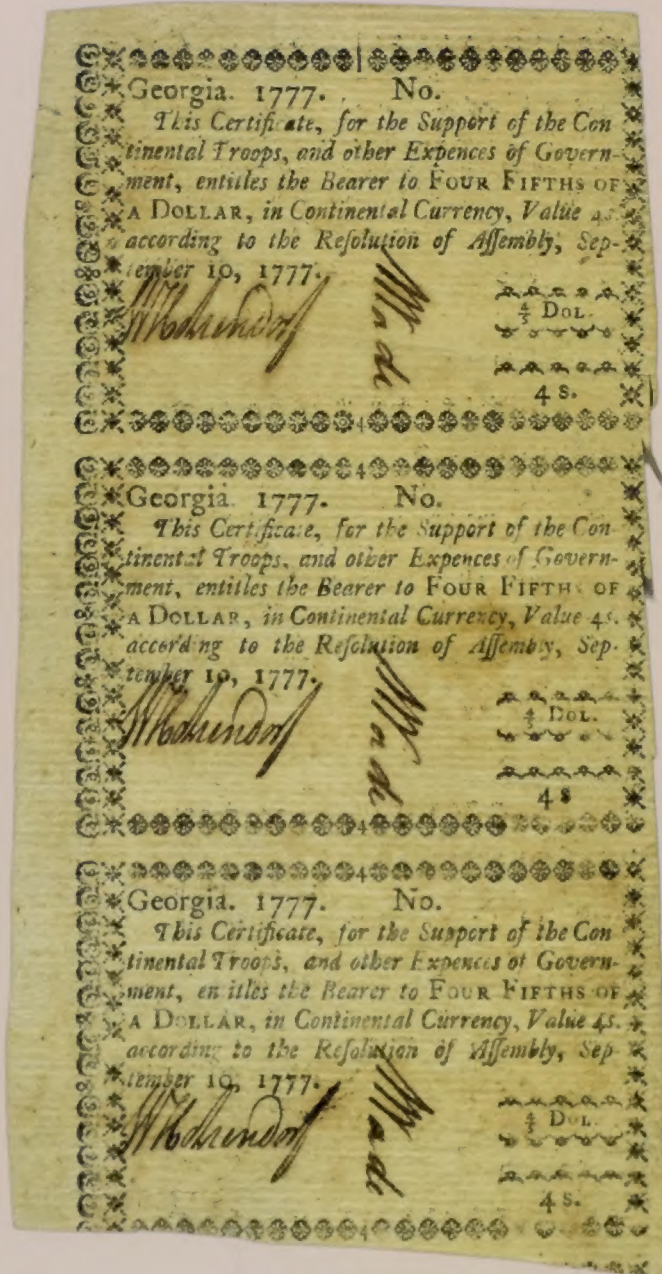 Georgia. 1777. No.
This Certificate, for the Support of the Con
tinental Troops, and other Expences of Govern-
ment, entitles the Bearer to FOUR FIFTHS OF
A DOLLAR, in Continental Currency, Value 4s.
according to the Reſolution of Aſſembly, Sep-
tember 10, 1777.
4/5 DOL.
4 s.
4
4
Georgia 1777. No.
This Certificate, for the Support of the Con-
tinental Troops, and other Expences of Govern-
ment, entitles the Bearer to FOUR FIFTHS OF
A DOLLAR, in Continental Currency, Value 4s.
according to the Reſolution of Aſſembly, Sep-
tember 10, 1777.
4/5 DOL.
4 s
4
4
Georgia. 1777. No.
This Certificate, for the Support of the Con
tinental Troops, and other Expences of Govern-
ment, entitles the Bearer to FOUR FIFTHS OF
A DOLLAR, in Continental Currency, Value 4s.
according to the Reſolution of Aſſembly, Sep
tember 10, 1777.
4/5 DOL
4 s.
4